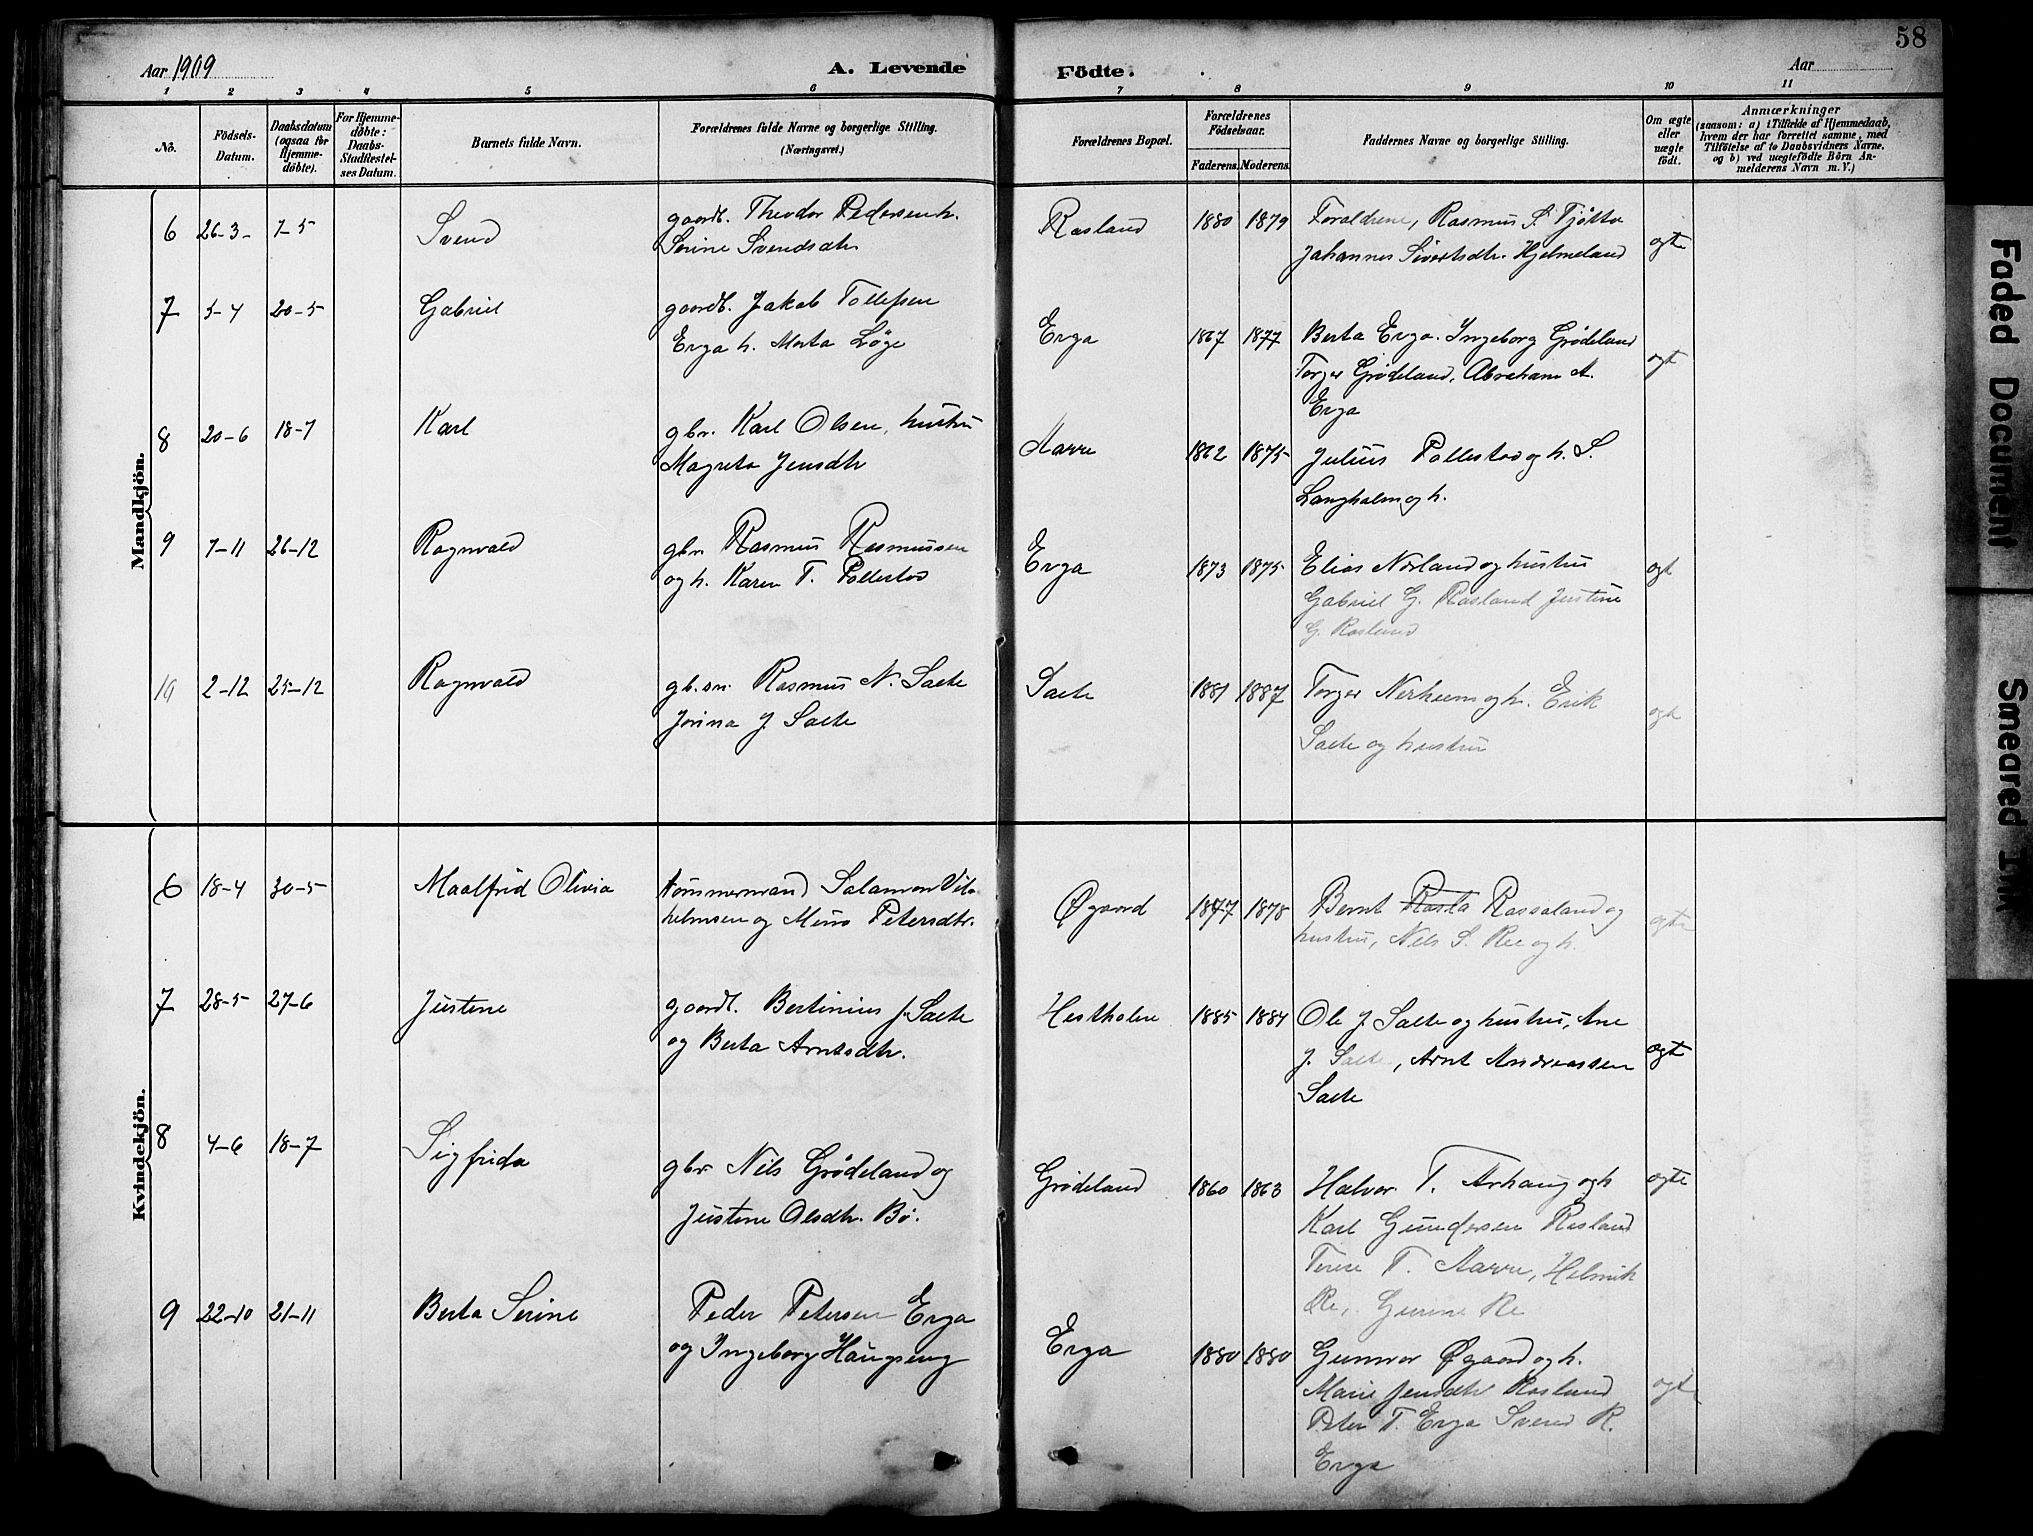 58
Aar 1909
A. Levende
Födte.
Aar
1 2 3 4 5 6 7 8 9 10 11
No.
Födsels-Datum.
Daabsdatum (ogsaa for Hjemme-døbte).
For Hjemme-døbte: Daabs-Stadfæstel-ses Datum.
Barnets fulde Navn.
Forældrenes fulde Navne og borgerlige Stilling. (Næringsvei.)
Forældrenes Bopæl.
Forældrenes Födselsaar.
Faderens. Moderens.
Faddernes Navne og borgerlige Stilling.
Om ægte eller uægte födt.
Anmærkninger
(saasom: a) i Tilfælde af Hjemmedaab, hvem der har forrettet samme, med Tilföielse af to Daabsvidners Navne, og b) ved uægtefödte Börn An-melderens Navn m. V.)
Mandkjön.
6 26-3- 7-5 Svend gaardb. Theodor Pedersen h. Rasland 1880 1879 Foraldrene, Rasmus S. Tjøtta
Serine Svendsdtr Johannes Sivertsdtr. Hjelmeland ogte
7 5-4 20-5 Gabriel gaardb. Jakob Tollefsen
Erga h. Marta Løge Erga 1867 1877 Berta Erga. Ingeborg Grødeland
Torger Grødeland, Abraham A. ogt
Erga
8 20-6 18-7 Karl gbr. Karl Olsen, hustru Aarre 1862 1875 Julius Pollestad og h. S.
Magreta Jensdtr Langholm og h.
9 7-11 26-12 Ragnvald gbr. Rasmus Rasmussen Erga 1873 1875 Elias Norland og hustru ogt
og h. Karen T. Pollestad Gabriel G. Rasland Justine
G. Rasland
10 2-12 25-12 Ragnvald gb.sn. Rasmus N. Salte Salte 1881 1887 Torger Nerheim og h. Erik
Jorina J. Salte Salte og hustru ogt
Kvindekjön.
6 18-4 30-5 Maalfrid Olivia tømmermand Salamon Vil- Øgaard 1877 1878 Bernt Rasla Rassaland og
helmsen og Mina Petersdtr. hustru, Nils S. Ree og h. ogte
7 28-5 27-6 Justine gaardb. Bertinius J. Salte Hestholm 1885 1884 Ole J Salte og hustru, Ane
og Berta Arntsdtr. J. Salte, Arnt Andreassen ogte
Salte
8 4-6 18-7 Sigfrida gbr Nils Grødeland og Grødeland 1860 1863 Halvor T. Arhaug og h ogte
Justine Olsdtr. Bø. Karl Gundersen Rasland
Terese T. Aarre, Helmik
Re, Gurine Re
9 22-10 21-11 Berta Serine Peder Petersen Erga
og Ingeborg Haugseng Erga 1880 1880 Gunvor Øgaard og h.
Marie Jensdtr Rasland ogte
Peter T. Erga Svend R.
Erga
Faded Document
Smeared Ink